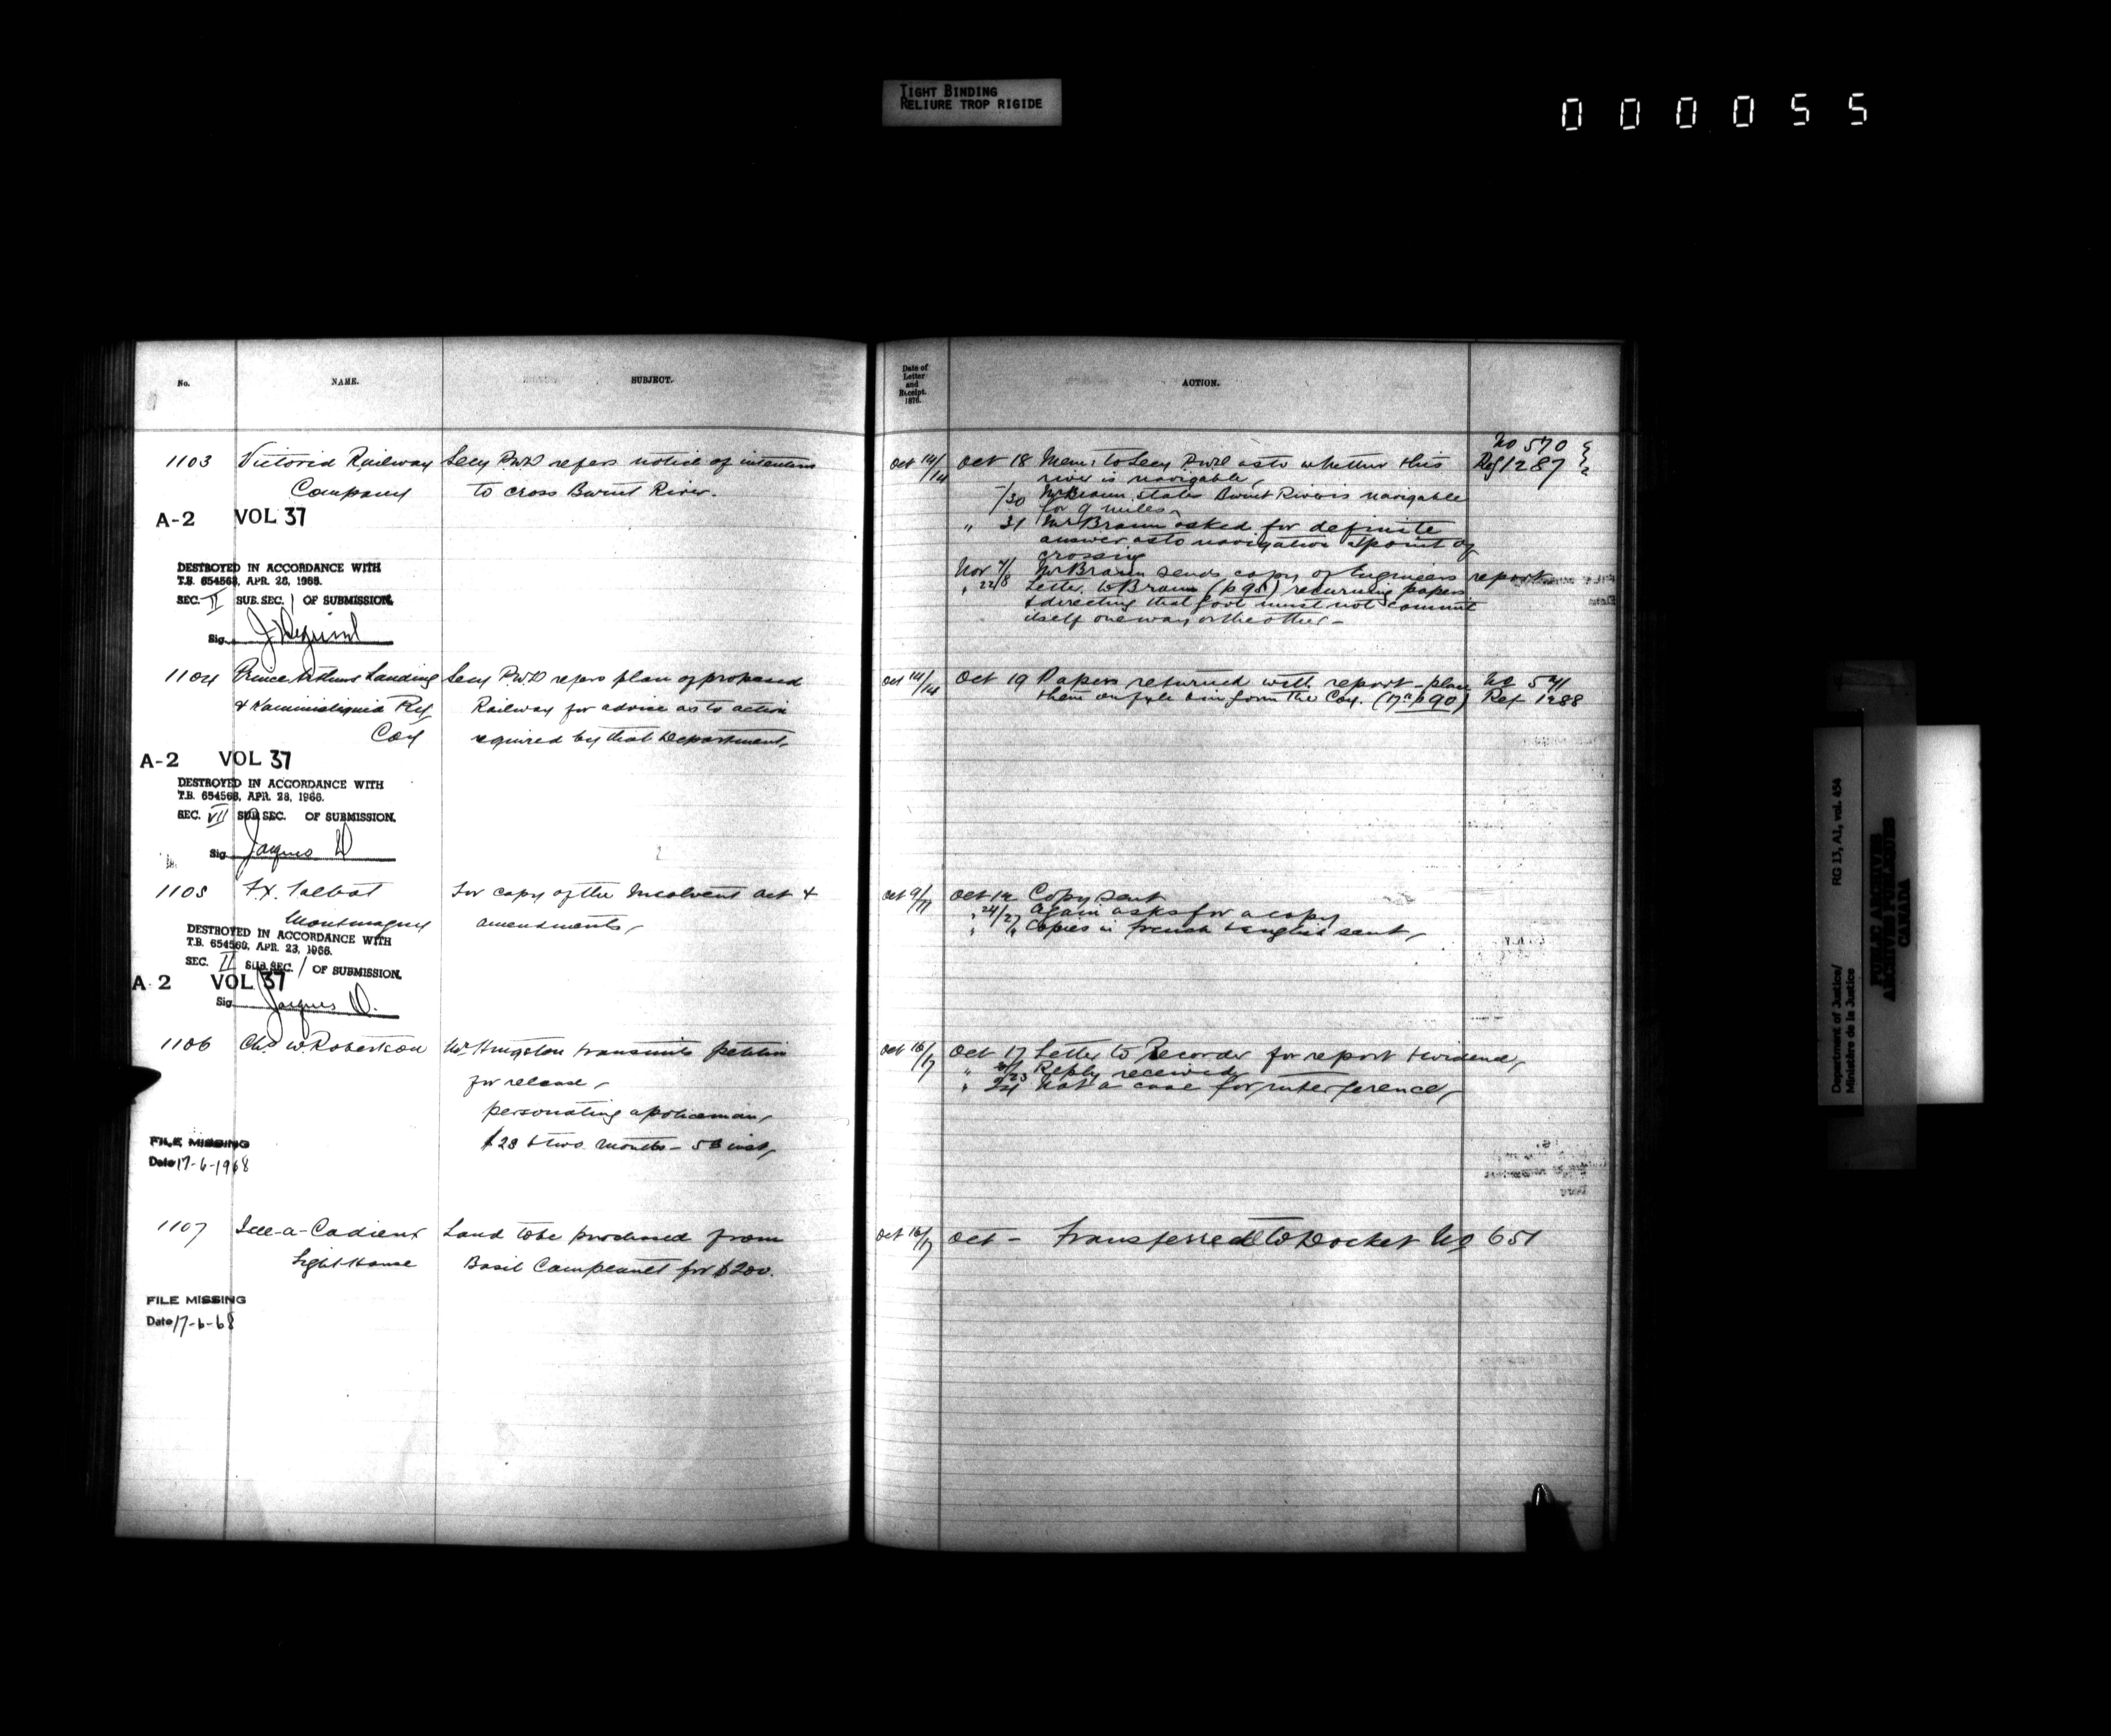 TIGHT BINDING
RELIURE TROP RIGIDE
000055
No.
NAME.
SUBJECT.
Date of
Letter
and
Receipt.
1876.
ACTION.
1103
Victoria Railway
Company
Secy P.W.D refers notice of intention
to cross Burnt River.
Oct 14/14
Oct 18 Mem: to Secy P.W.D as to whether this
river is navigable,
/30 Mr Braun states Burnt River is navigable
for 9 miles
" 31 Mr Braun asked for definite
answer as to navigation at point of
crossing
Nov 7/8 Mr Braun sends copy of Engineers report
" 22 Letter to Braun (p 95) returning papers
& directing that Govt must not commit
itself one way or the other -
No 570
Ref 1287
A-2 VOL 37
DESTROYED IN ACCORDANCE WITH
T.B. 654563, APR. 28, 1966.
SEC. II SUB. SEC. 1 OF SUBMISSION.
Sig.
1104
Prince Arthurs Landing
& Kaministiquia Ry
Coy
Secy P.W.D refers plan of proposed
Railway for advice as to action
required by that Department,
Oct 14/14
Oct 19 Papers returned with report - plan
Ref 1288
A-2 VOL 37
DESTROYED IN ACCORDANCE WITH
T.B. 654563, APR. 28, 1966.
SEC. VII SUB SEC. OF SUBMISSION.
Sig. Jacques D
1105
F.X. Talbot
Montmagny
For copy of the Insolvent Act &
amendments,
Oct 9/11
Oct 12 Copy sent
" 24/27 Again asks for a copy
" " Copies in French & English sent,
DESTROYED IN ACCORDANCE WITH
T.B. 654563, APR. 28, 1966.
SEC. II SUB. SEC. 1 OF SUBMISSION.
A 2 VOL 37
Sig. Jacques D.
1106
Chas W. Robertson
Mr Hingston transmits petition
for release,
personating a policeman,
$20 & two months - 5th inst,
Oct 16/17
Oct 17 Letter to Recorder for report & evidence,
" 21/23 Reply received
" 24 Not a case for interference,
FILE MISSING
Date 17-6-1968
1107
Isle-a-Cadieux
Light House
Land to be purchased from
Basil Campeault for $200.
Oct 16/17
Oct - Transferred to Docket No 651
FILE MISSING
Date 17-6-68
Department of Justice/
Ministère de la Justice
RG 13, A1, vol. 454
PUBLIC ARCHIVES
ARCHIVES PUBLIQUES
CANADA